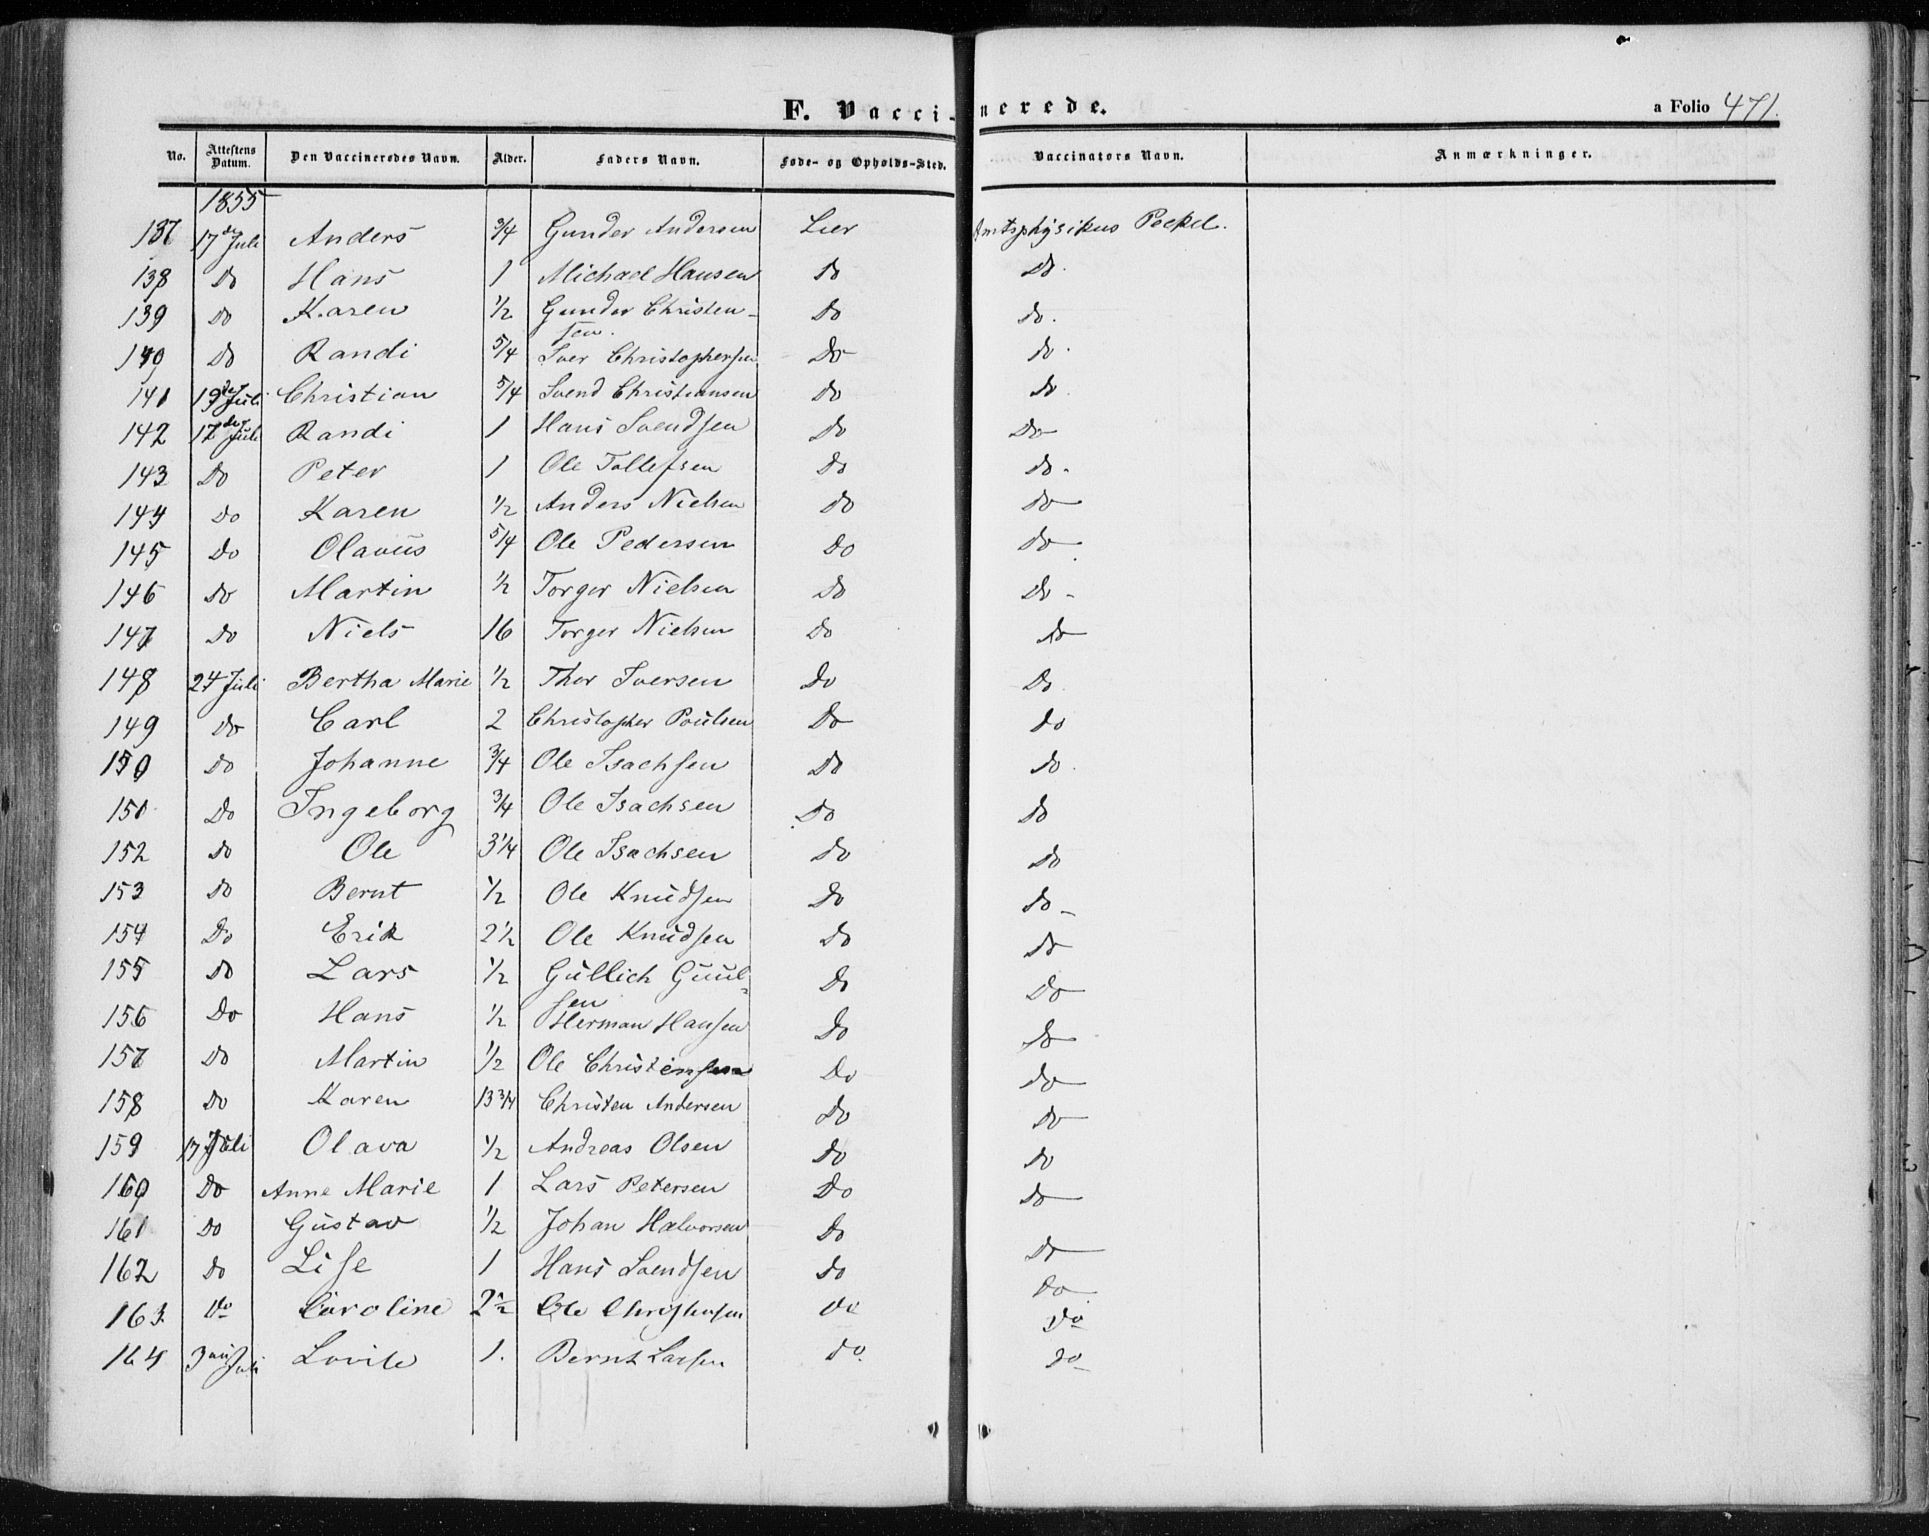 F. Vaccinerede.
a Folio 471.
No. Attestens Datum. Den Vaccineredes Navn. Alder. Faders Navn. Føde- og Opholds-Sted. Vaccinators Navn. Anmærkninger.
1855
137 17de Juli Anders 3/4 Gunder Andersen Lier Amtsphysikus Peckel.
138 Do Hans 1 Michael Hansen Do Do.
139 Do Karen 1/2 Gunder Christen-
sen. Do Do.
140 Do Randi 5/4 Iver Christophersen Do Do.
141 19de Juli Christian 5/4 Svend Christiansen Do Do
142 17de Juli Randi 1 Hans Svendsen Do Do
143 Do Peter 1 Ole Tollefsen Do Do.
144 Do Karen 1/2 Anders Nielsen Do Do
145 Do Olavus 5/4 Ole Pedersen Do Do
146 Do Martin 1/2 Torger Nielsen Do Do
147 Do Niels 16 Torger Nielsen Do Do
148 24 Juli Bertha Marie 1/2 Thor Iversen Do Do
149 Do Carl 2 Christopher Poulsen Do Do
150 Do Johanne 3/4 Ole Isachsen Do Do.
151 Do Ingeborg 3/4 Ole Isachsen Do Do
152 Do Ole 3 1/4 Ole Isachsen Do Do
153 Do Bernt 1/2 Ole Knudsen Do Do
154 Do Erik 2 1/2 Ole Knudsen Do Do
155 Do Lars 1/2 Gullich Guul-
sen Do Do
156 Do Hans 1/2 Herman Hansen Do Do
157 Do Martin 1/2 Ole Christensen Do Do
158 Do Karen 13 3/4 Christen Andersen Do Do
159 17 Juli Olava 1/2 Andreas Olsen Do Do
160 Do Anne Marie 1 Lars Petersen Do Do
161 Do Gustav 1/2 Johan Halvorsen Do Do
162 Do Lise 1 Hans Svendsen Do Do
163. Do Caroline 2 1/2 Ole Christensen Do Do
164 Juli Lovise 1. Bernt Larsen Do. Do